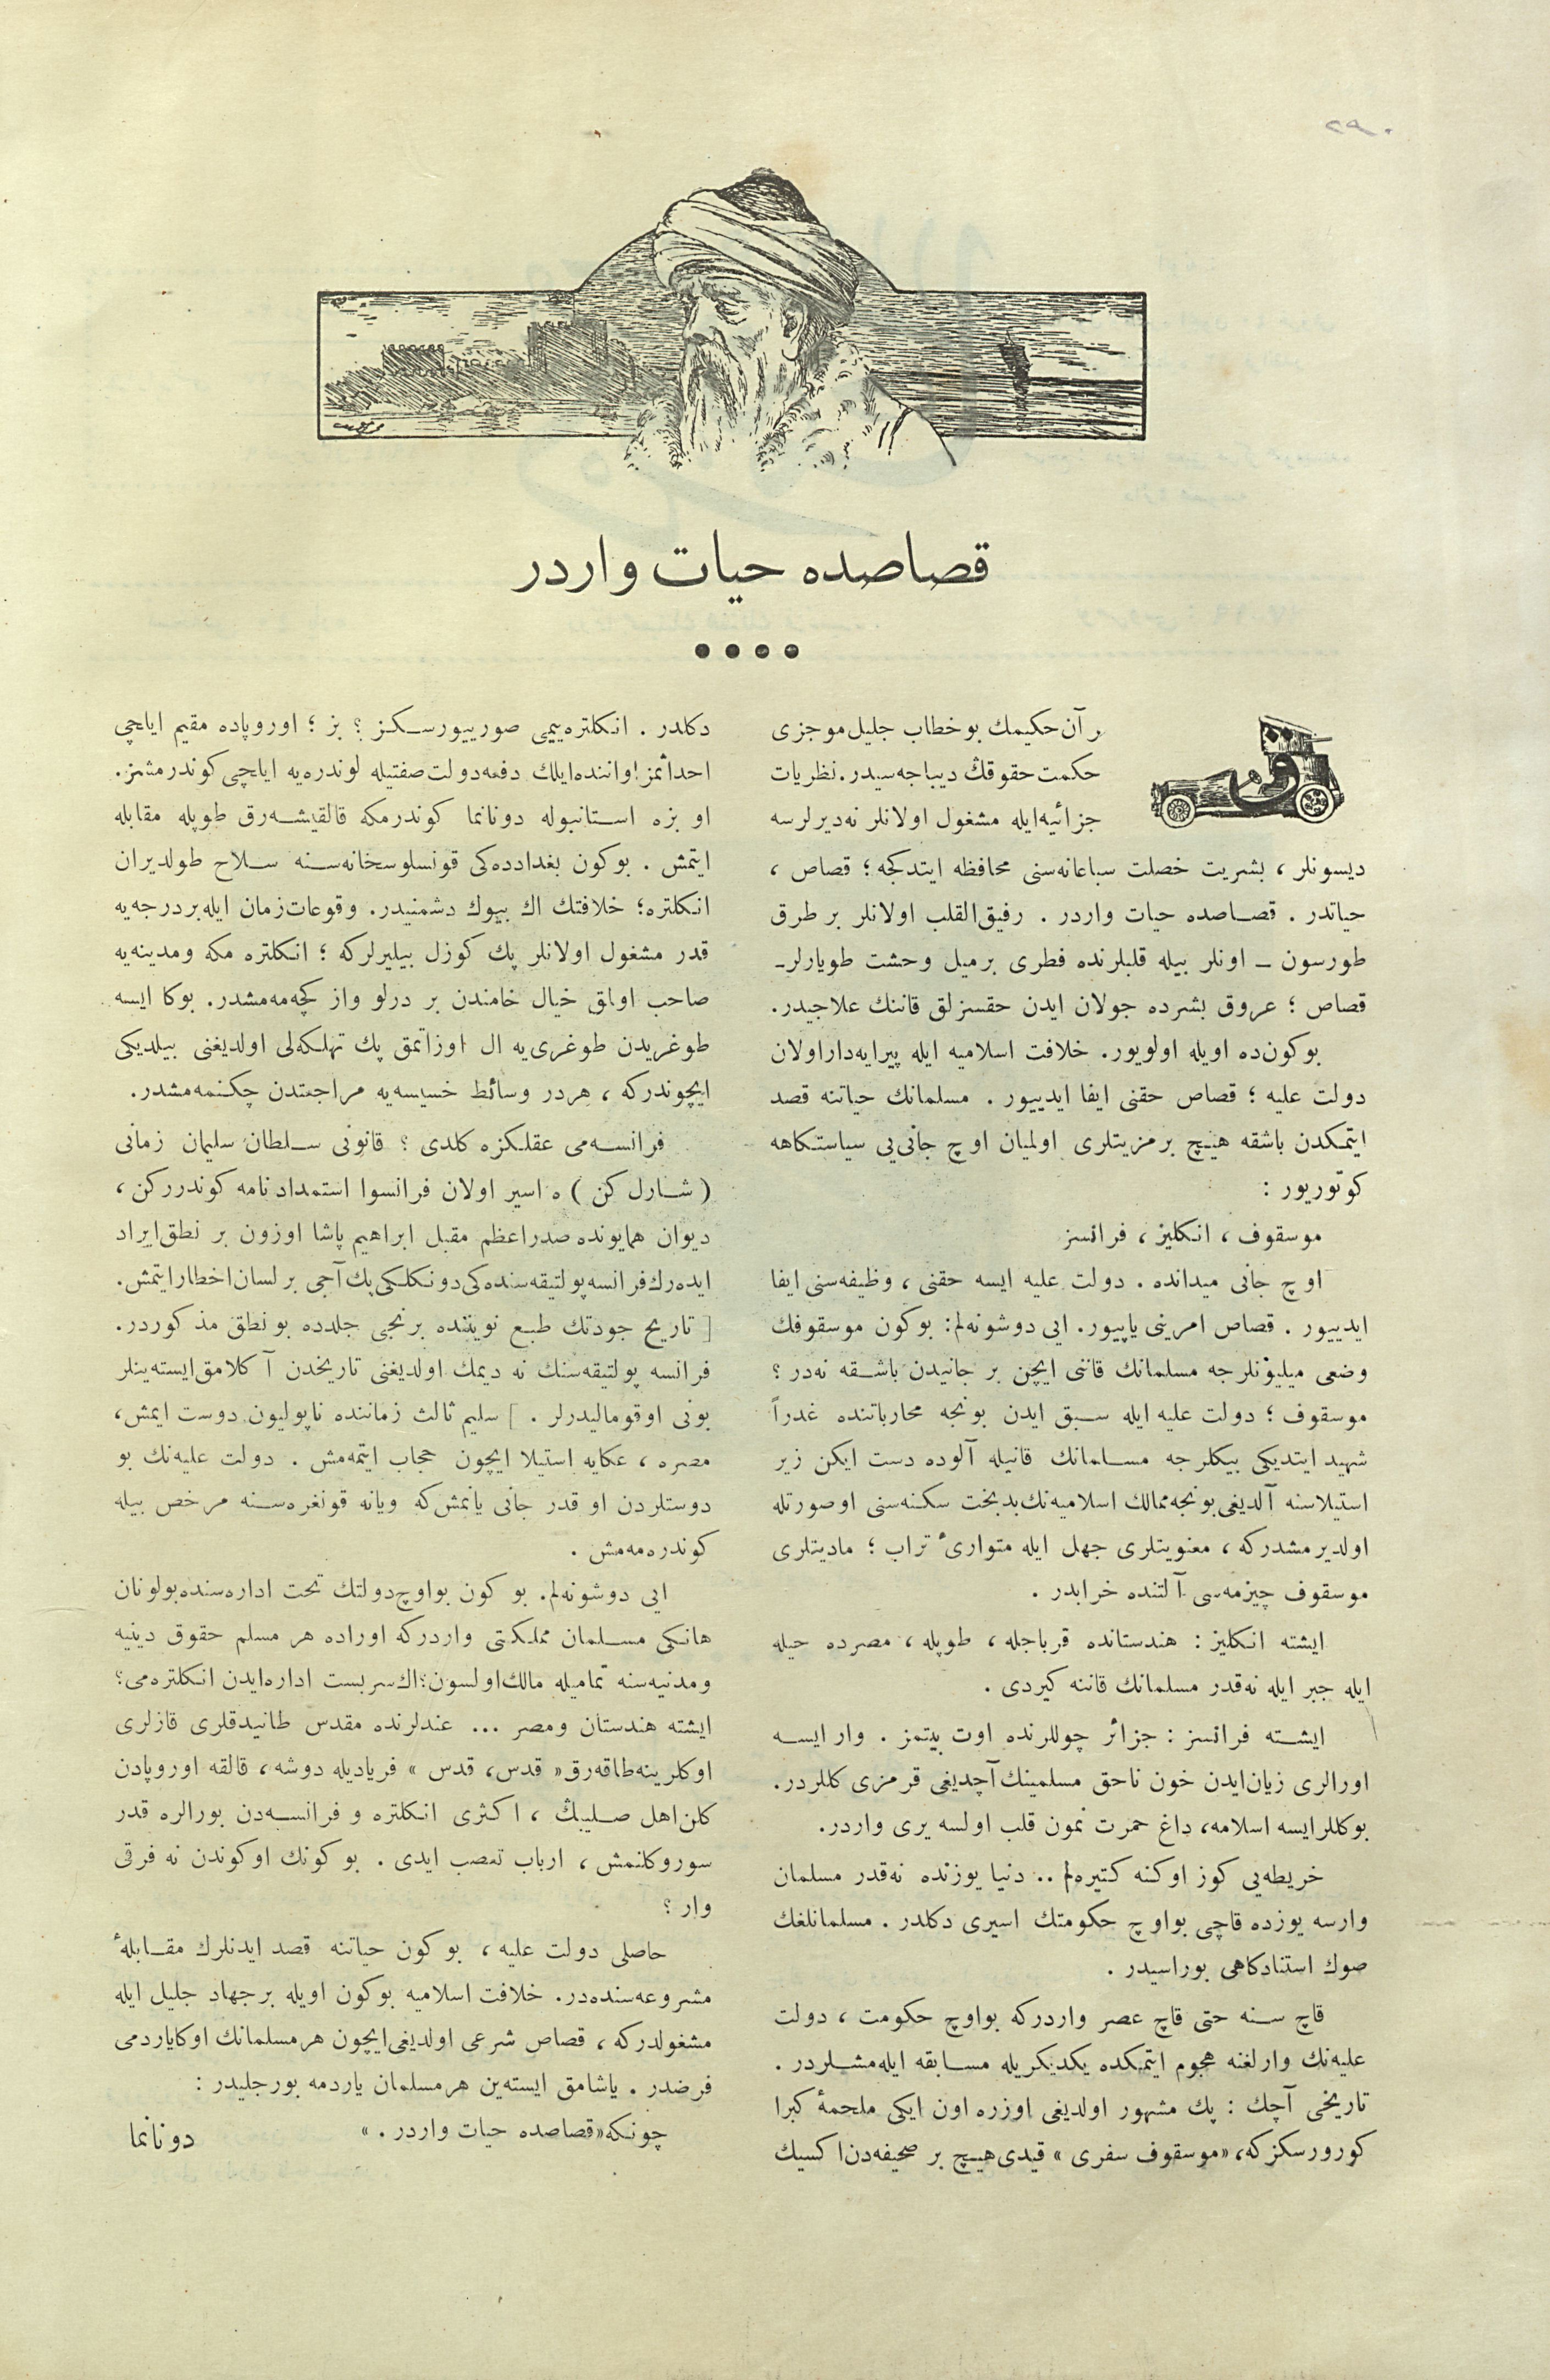 قصاصده حیات واردر
قرآن حکیمك بو خطاب جلیل موجزی
حکمت حقوقك دیباجه سیدر. نظریات
جزائیه ایله مشغول اولانلر نه دیرلرسه
دیسونلر ، بشریت خصلت سباعانه سنی محافظه ایتدکجه ؛ قصاص ،
حیاتدر . قصاصده حیات واردر . رفیق القلب اولانلر بر طرق
طورسون ــ اونلر بیله قلبلرنده فطری برمیل وحشت طویارلر ــ
قصاص ؛ عروق بشرده جولان ایدن حقسزلق قاننك علاجیدر.
بوکون ده اویله اولویور. خلافت اسلامیه ایله پیرایه دار اولان
دولت علیه ؛ قصاص حقنی ایفا ایدییور . مسلمانك حیاتنه قصد
ایتمکدن باشقه هیچ بر مزیتلری اولمیان اوچ جانی یی سیاستکاهه
کوتوریور :
موسقوف ، انکلیز ، فرانسز
اوچ جانی میدانده . دولت علیه ایسه حقنی ، وظیفه سنی ایفا
ایدییور . قصاص امرینی یاپییور. ایی دوشونه لم: بوکون موسقوفك
وضعی میلیونلرجه مسلمانك قاننی ایچن بر جانیدن باشقه نه در ؟
موسقوف ؛ دولت علیه ایله سبق ایدن بونجه محارباتنده غدراً
شهید ایتدیکی بیکلرجه مسلمانك قانیله آلوده دست ایکن زیر
استیلاسنه آلدیغی بونجه ممالك اسلامیه نك بدبخت سکنه سنی او صورتله
اولدیرمشدرکه ، معنویتلری جهل ایله متواریٔ تراب ؛ مادیتلری
موسقوف چیزمه سی آلتنده خرابدر .
ایشته انکلیز : هندستانده قرباجله ، طوپله ، مصرده حیله
ایله جبر ایله نه قدر مسلمانك قاننه کیردی .
ایشته فرانسز : جزائر چوللرنده اوت بیتمز . وار ایسه
اورالری زیان ایدن خون ناحق مسلمینك آچدیغی قرمزی کللردر.
بوکللر ایسه اسلامه، داغ حمرت نمون قلب اولسه یری واردر.
خریطه یی کوز اوکنه کتیره لم .. دنیا یوزنده نه قدر مسلمان
وارسه یوزده قاچی بو اوچ حکومتك اسیری دکلدر . مسلمانلغك
صوك استنادکاهی بوراسیدر .
قاچ سنه حتی قاچ عصر واردرکه بو اوچ حکومت ، دولت
علیه نك وارلغنه هجوم ایتمکده یکدیکریله مسابقه ایله مشلردر .
تاریخی آچك : پك مشهور اولدیغی اوزره اون ایکی ملحمهٔ کبرا
کورورسکزکه، «موسقوف سفری » قیدی هیچ بر صحیفه دن اکسیك
دکلدر . انکلتره ییمی صورییورسکز ؟ بز ؛ اوروپاده مقیم ایلچی
احداثمز اواننده ایلك دفعه دولت صفتیله لوندره یه ایلچی کوندرمشز.
او بزه استانبوله دونانما کوندرمکه قالقیشه رق طوپله مقابله
ایتمش . بوکون بغدادده کی قونسلوسخانه سنه سلاح طولدیران
انکلتره ؛ خلافتك اك بیوك دشمنیدر. وقوعات زمان ایله بر درجه یه
قدر مشغول اولانلر پك کوزل بیلیرلرکه ؛ انکلتره مکه ومدینه یه
صاحب اولمق خیال خامندن بر درلو واز کچه مه مشدر. بوکا ایسه
طوغریدن طوغری یه ال اوزاتمق پك تهلکه لی اولدیغنی بیلدیکی
ایچوندرکه ، هردر وسائط خسیسه یه مراجعتدن چکنمه مشدر.
فرانسه می عقلکزه کلدی ؟ قانونی سلطان سلیمان زمانی
( شارل کن ) ه اسیر اولان فرانسوا استمدادنامه کوندررکن ،
دیوان همایونده صدراعظم مقبل ابراهیم پاشا اوزون بر نطق ایراد
ایده رك فرانسه پولتیقه سنده کی دونکلکی پك آجی بر لسان اخطار ایتمش.
[ تاریخ جودتك طبع نویننده برنجی جلدده بو نطق مذکوردر.
فرانسه پولتیقه سنك نه دیمك اولدیغنی تاریخدن آکلامق ایسته ینلر
بونی اوقومالیدرلر . ] سلیم ثالث زماننده ناپولیون دوست ایمش،
مصره ، عکایه استیلا ایچون حجاب ایتمه مش . دولت علیه نك بو
دوستلردن او قدر جانی یانمش که ویانه قونغره سنه مرخص بیله
کوندره مه مش .
ایی دوشونه لم. بو کون بو اوچ دولتك تحت اداره سنده بولونان
هانکی مسلمان مملکتی واردرکه اوراده هر مسلم حقوق دینیه
ومدنیه سنه تمامیله مالك اولسون ؛ اك سربست اداره ایدن انکلتره می؟
ایشته هندستان ومصر ... عندلرنده مقدس طانیدقلری قازلری
اوکلرینه طاقه رق « قدس، قدس » فریادیله دوشه ، قالقه اوروپادن
کلن اهل صلیبك ، اکثری انکلتره و فرانسه دن بورالره قدر
سوروکلنمش ، ارباب تعصب ایدی . بو کونك اوکوندن نه فرقی
وار ؟
حاصلی دولت علیه ، بو کون حیاتنه قصد ایدنلرك مقابلهٔ
مشروعه سنده در. خلافت اسلامیه بوکون اویله بر جهاد جلیل ایله
مشغولدرکه ، قصاص شرعی اولدیغی ایچون هر مسلمانك اوکا یاردمی
فرضدر . یاشامق ایسته ین هر مسلمان یاردمه بورجلیدر :
چونکه « قصاصده حیات واردر . »
دونانما